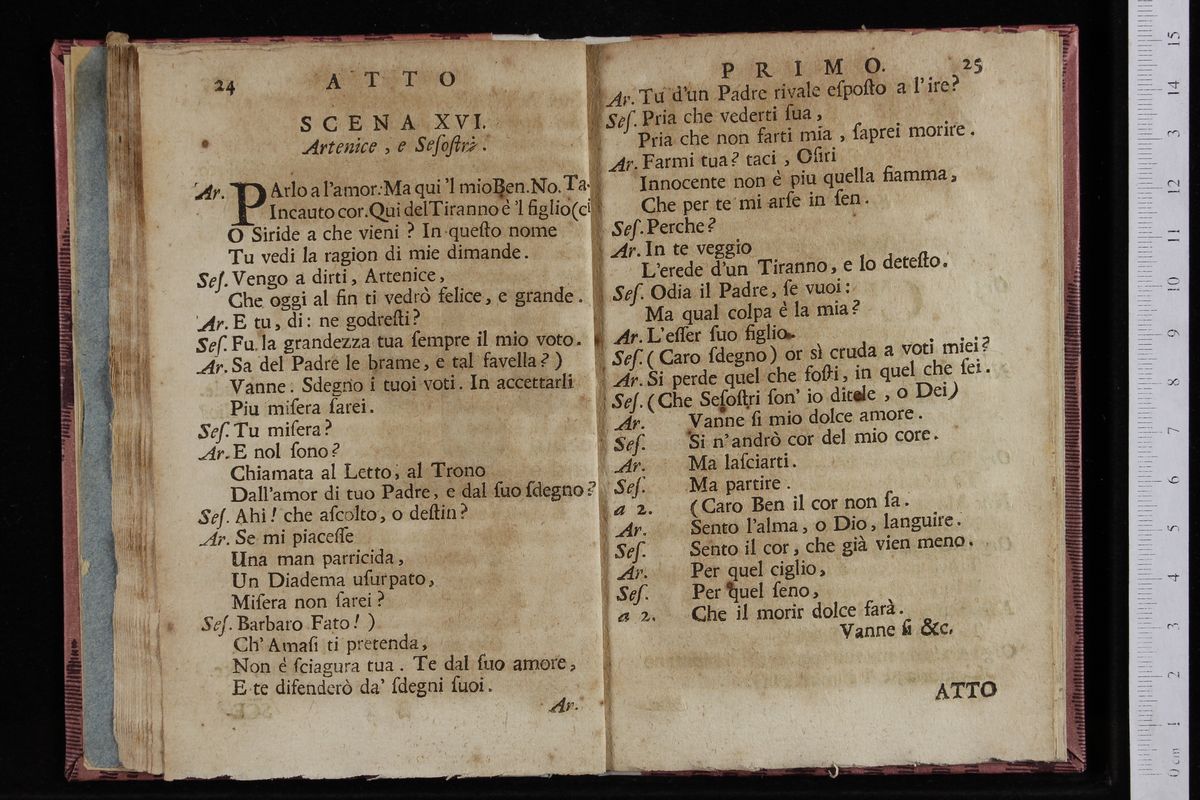 24 ATTO
SCENA XVI.
Artenice , e Sesostri .
Ar. PArlo a l'amor. Ma qui 'l mio Ben. No. Ta-
Incauto cor. Qui del Tiranno è 'l figlio (ci
O Siride a che vieni ? In questo nome
Tu vedi la ragion di mie dimande .
Ses. Vengo a dirti , Artenice ,
Che oggi al fin ti vedrò felice , e grande .
Ar. E tu , di : ne godresti ?
Ses. Fu la grandezza tua sempre il mio voto .
Ar. Sa del Padre le brame , e tal favella ? )
Vanne . Sdegno i tuoi voti . In accettarli
Piu misera sarei .
Ses. Tu misera ?
Ar. E nol sono ?
Chiamata al Letto , al Trono
Dall'amor di tuo Padre , e dal suo sdegno ?
Ses. Ahi ! che ascolto , o destin ?
Ar. Se mi piacesse
Una man parricida ,
Un Diadema usurpato ,
Misera non sarei ?
Ses. Barbaro Fato ! )
Ch' Amasi ti pretenda ,
Non è sciagura tua . Te dal suo amore ,
E te difenderò da' sdegni suoi .
Ar.
PRIMO. 25
Ar. Tu d'un Padre rivale esposto a l'ire ?
Ses. Pria che vederti sua ,
Pria che non farti mia , saprei morire .
Ar. Farmi tua ? taci , Osiri
Innocente non è piu quella fiamma ,
Che per te mi arse in sen .
Ses. Perche ?
Ar. In te veggio
L'erede d'un Tiranno , e lo detesto .
Ses. Odia il Padre , se vuoi :
Ma qual colpa è la mia ?
Ar. L'esser suo figlio .
Ses. ( Caro sdegno ) or sì cruda a voti miei ?
Ar. Si perde quel che fosti , in quel che sei .
Ses. (Che Sesostri son' io ditele , o Dei)
Ar. Vanne si mio dolce amore .
Ses. Si n'andrò cor del mio core .
Ar. Ma lasciarti .
Ses. Ma partire .
a 2. (Caro Ben il cor non sa .
Ar. Sento l'alma , o Dio , languire .
Ses. Sento il cor , che già vien meno .
Ar. Per quel ciglio ,
Ses. Per quel seno ,
a 2. Che il morir dolce sarà .
Vanne si &c.
ATTO
0 cm 1 2 3 4 5 6 7 8 9 10 11 12 13 14 15